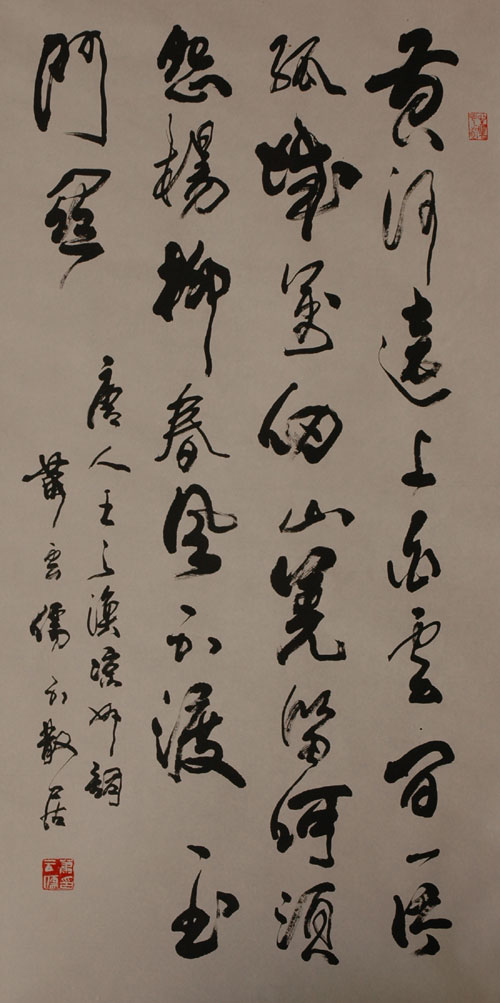 黄河遠上白雲間一片
孤城萬仞山羌笛何須
怨楊柳春風不渡玉
門關
唐人王之渙涼州詞
蕭雲儒不散居